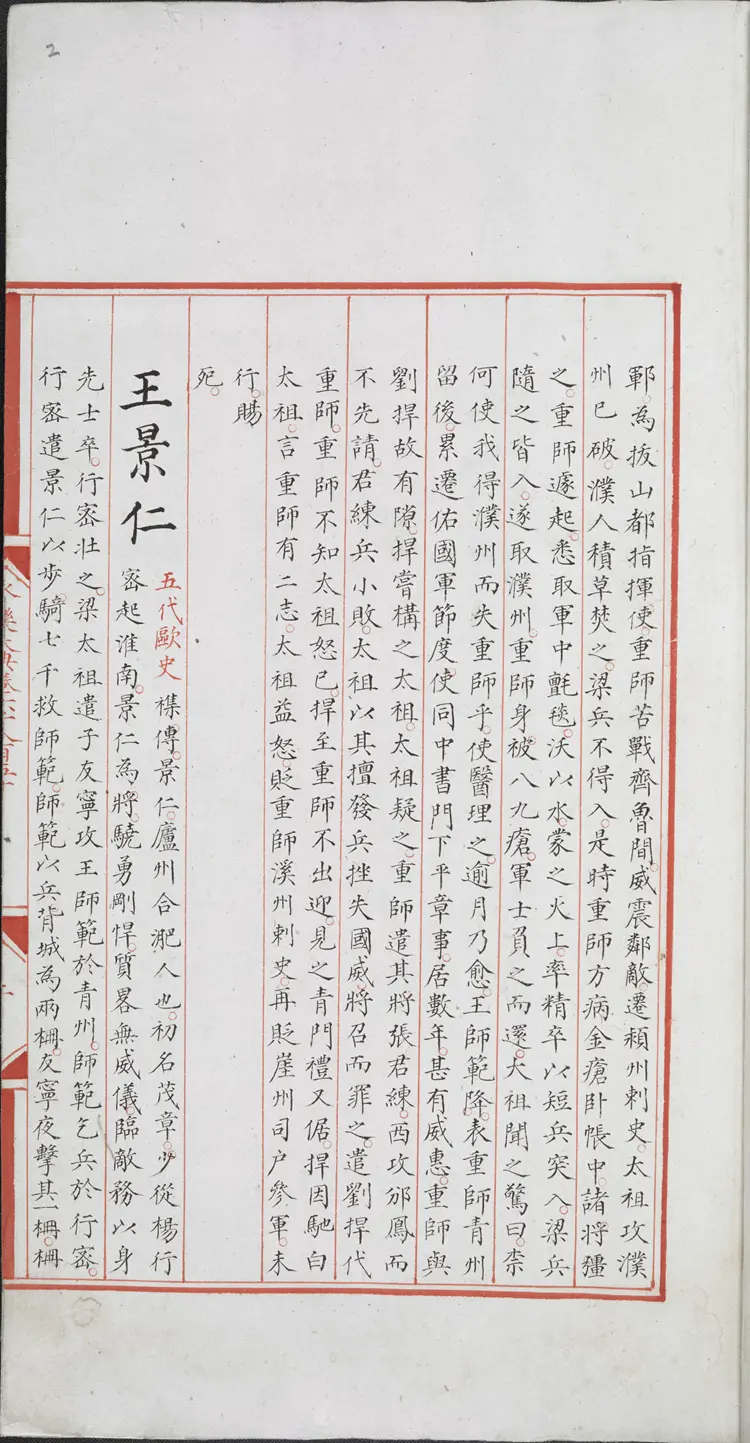 2
鄆。為拔山都指揮使。重師苦戰齊魯間。威震鄰敵。遷潁州刺史。太祖攻濮
州已破。濮人積草焚之。梁兵不得入。是時重師方病金瘡卧帳中。諸將彊
之。重師遽起。悉取軍中氈毯。沃以水。蒙之火上。率精卒以短兵突入。梁兵
隨之皆入。遂取濮州。重師身被八九瘡。軍士負之而還。太祖聞之驚曰。柰
何使我得濮州而失重師乎。使醫理之。逾月乃愈。王師範降。表重師青州
留後。累遷佑國軍節度使同中書門下平章事。居數年。甚有威惠。重師與
劉捍故有隙。捍嘗構之太祖。太祖疑之。重師遣其將張君練。西攻邠鳳而
不先請。君練兵小敗。太祖以其擅發兵挫失國威。將召而罪之。遣劉捍代
重師。重師不知太祖怒已。捍至重師不出迎。見之青門禮又倨。捍因馳白
太祖。言重師有二志。太祖益怒。貶重師溪州刺史。再貶崖州司户參軍。未
行。賜
死。
王景仁 五代歐史 襍傳。景仁。廬州合淝人也。初名茂章。少從楊行
密起淮南。景仁為將。驍勇剛悍。質畧無威儀。臨敵務以身
先士卒。行密壯之。梁太祖遣子友寧攻王師範於青州。師範乞兵於行密。
行密遣景仁以步騎七千救師範。師範以兵背城為兩柵。友寧夜擊其一柵。柵